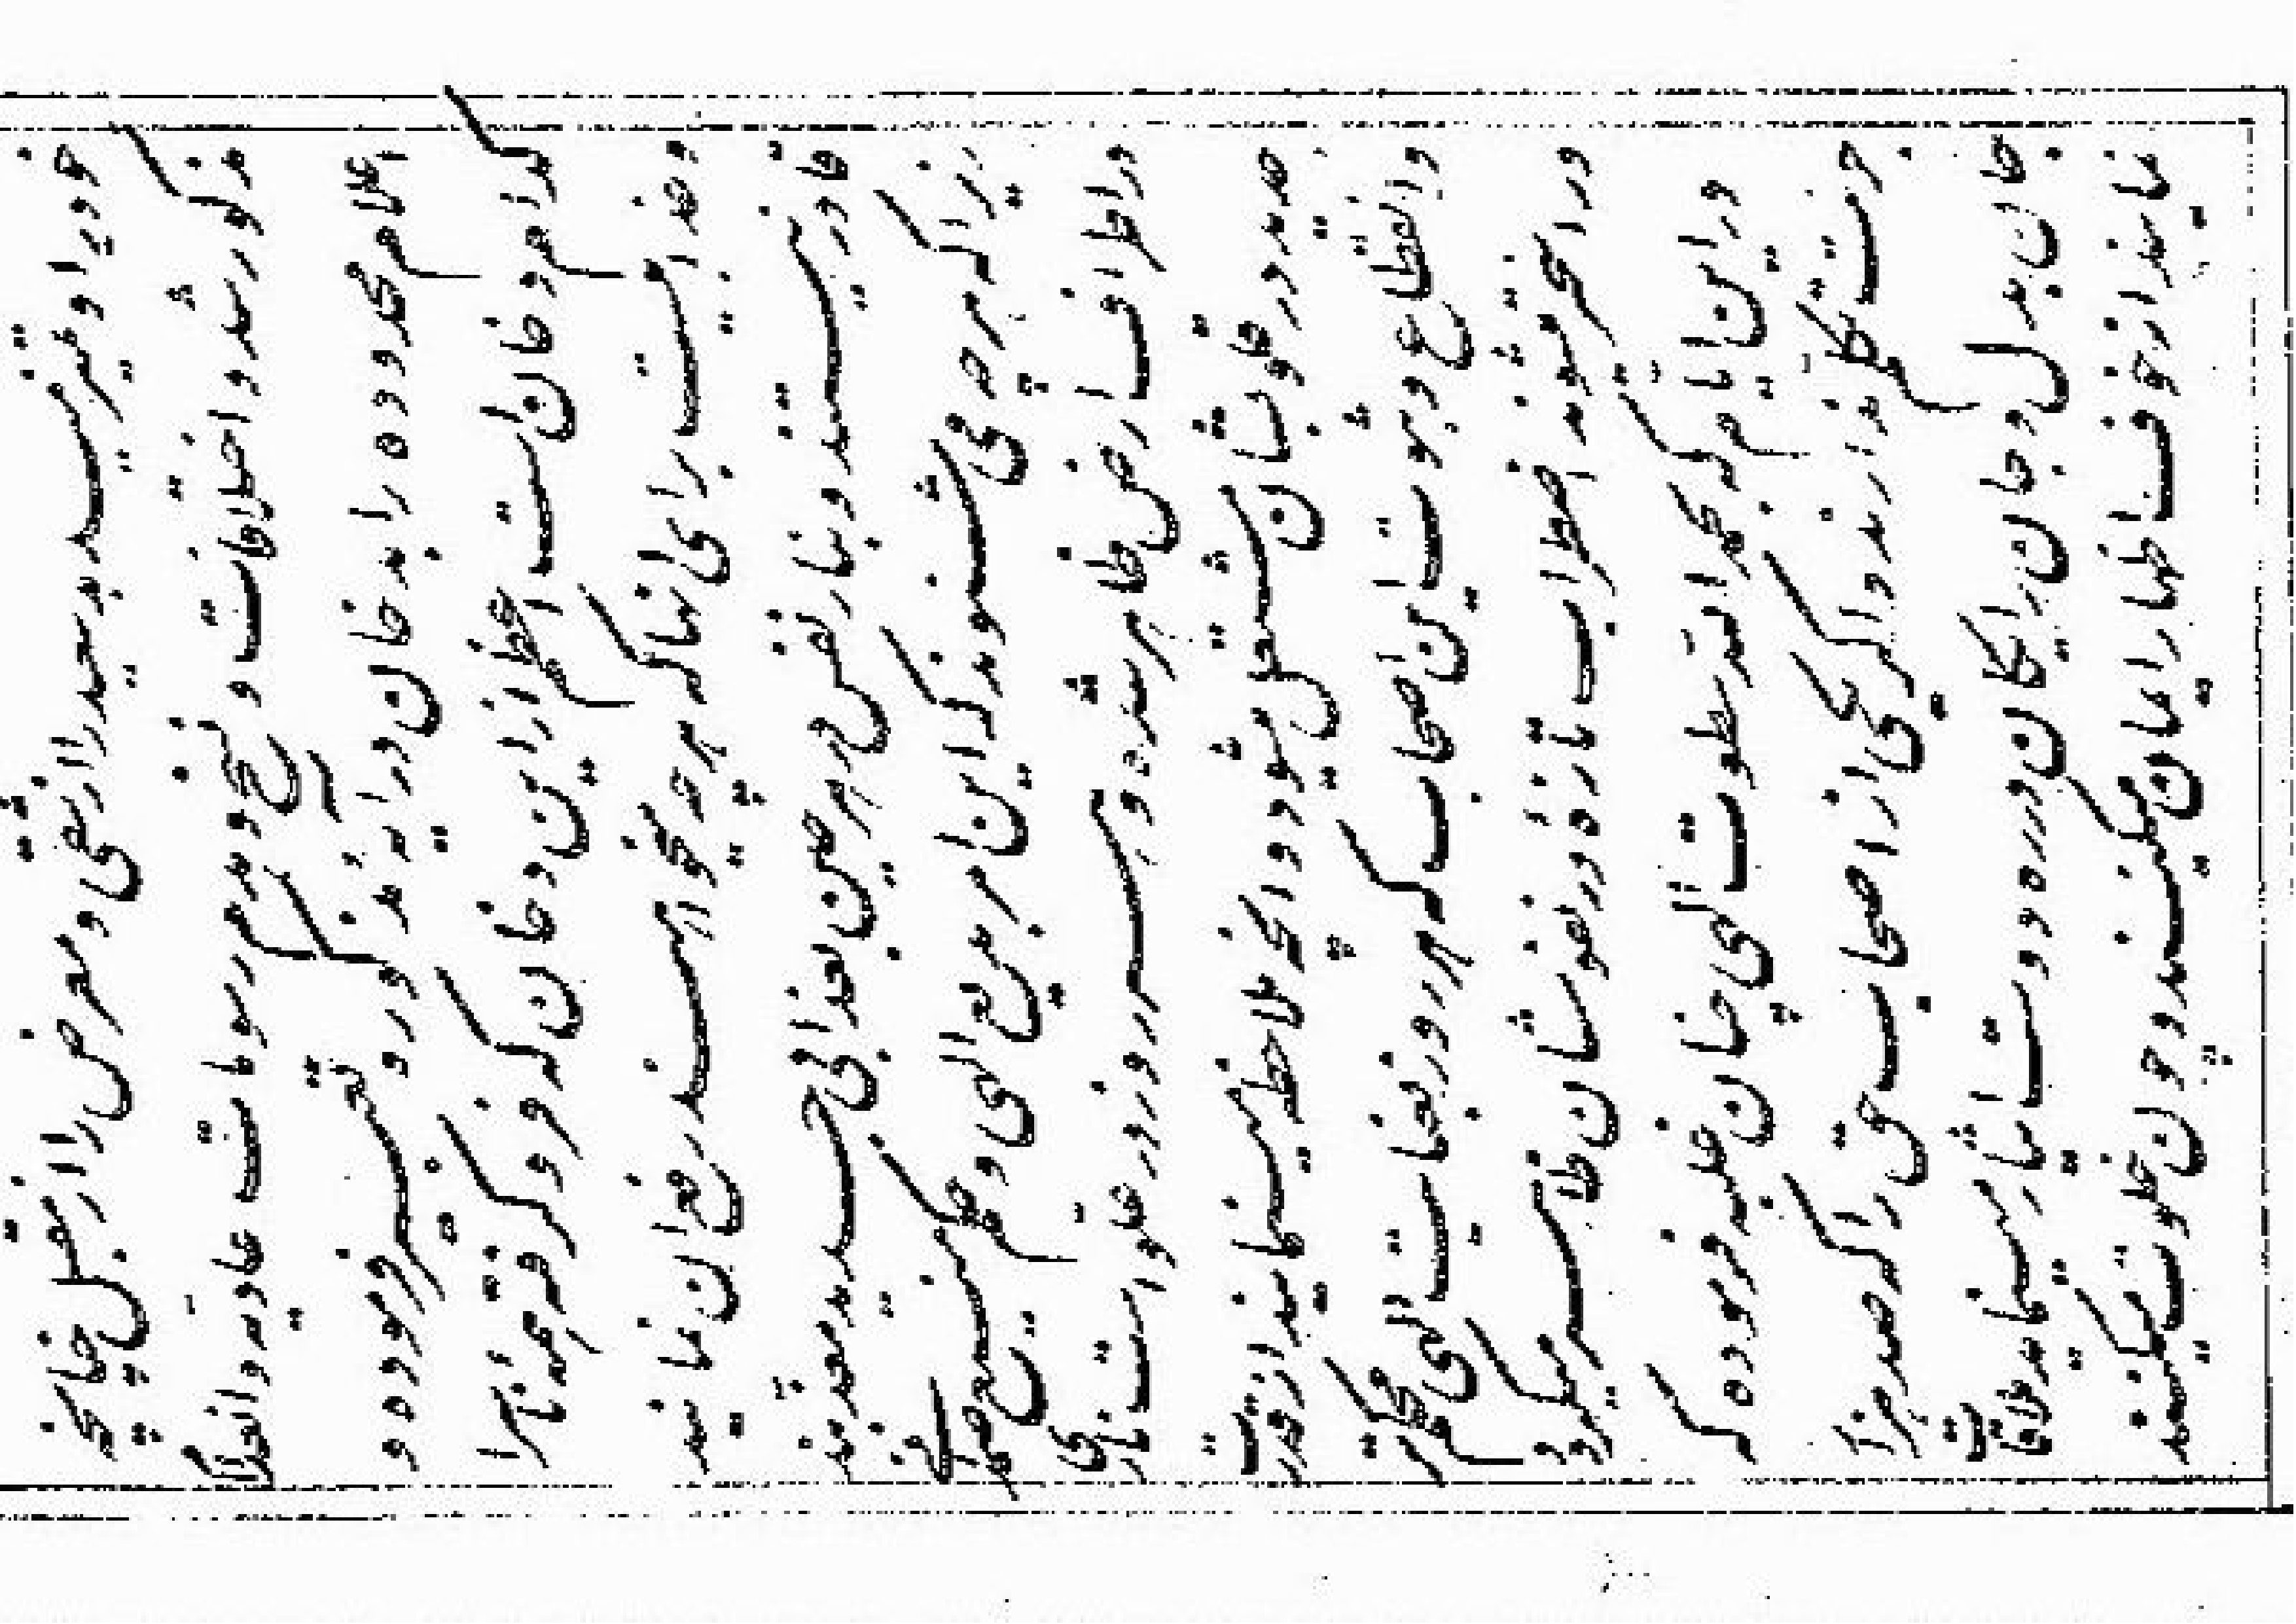 خود را و تمیز دهد سعید را از شقی و معرض را از مقبل چنانچه
مذکور شد و اختلافات و نسخ و هدم رسومات عادیه و انعدام
اعلام محدوده را بدخان در آیه مذکوره تعبیر فرموده و
کدام دخان است اعظم از این دخان که فرو گرفته همه ناس را
و عذابی است برای آنها که هر چه میخواهند رفع آن نمایند
قادر نیستند و بنار نفس در هر حین بعذابی جدید معذبند
زیرا که هر چه میشنوند که این امر بدیع الهی و حکم منیع صمدانی
در اطراف ارض ظاهر شده و هر روز در علو است ناری
جدید در قلوبشان مشتعل میشود و آنچه ملاحظه مینمایند از قدرت
و انقطاع و ثبوت این اصحاب که هر روز بعنایت الهی محکم‌تر
و راسخ‌تر میشوند اضطراب تازه در نفوسشان ظاهر میگردد
در این ایام که بحمد الله سطوت الهی چنان غلبه فرموده که
جرئت تکلم ندارند و اگر یکی از اصحاب حق را که صد هزار
جان بدل و جان رایگان در ره دوست ایثار مینماید ملاقات
نمایند از خوف اظهار ایمان میکنند و چون خلوت میکنند